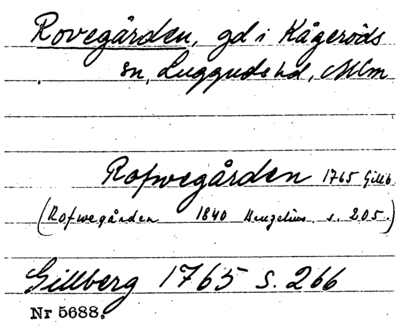 Rovegården, gd i Kågeröds
sn, Luggude hd, Mlm
Rofwegården 1765 Gillb.
(Rofwegården 1840 Wenzelius s. 205.)
Gillberg 1765 s. 266
Nr 5688.